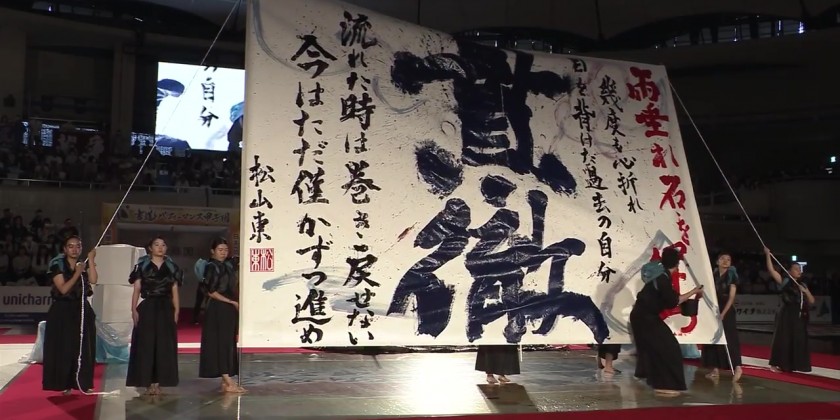 雨垂れ石を穿つ
幾度も心折れ
目を背けた過去の自分
貫徹
流れた時は巻き戻せない
今はただ僅かずつ進め
松山東
自分
unicharm